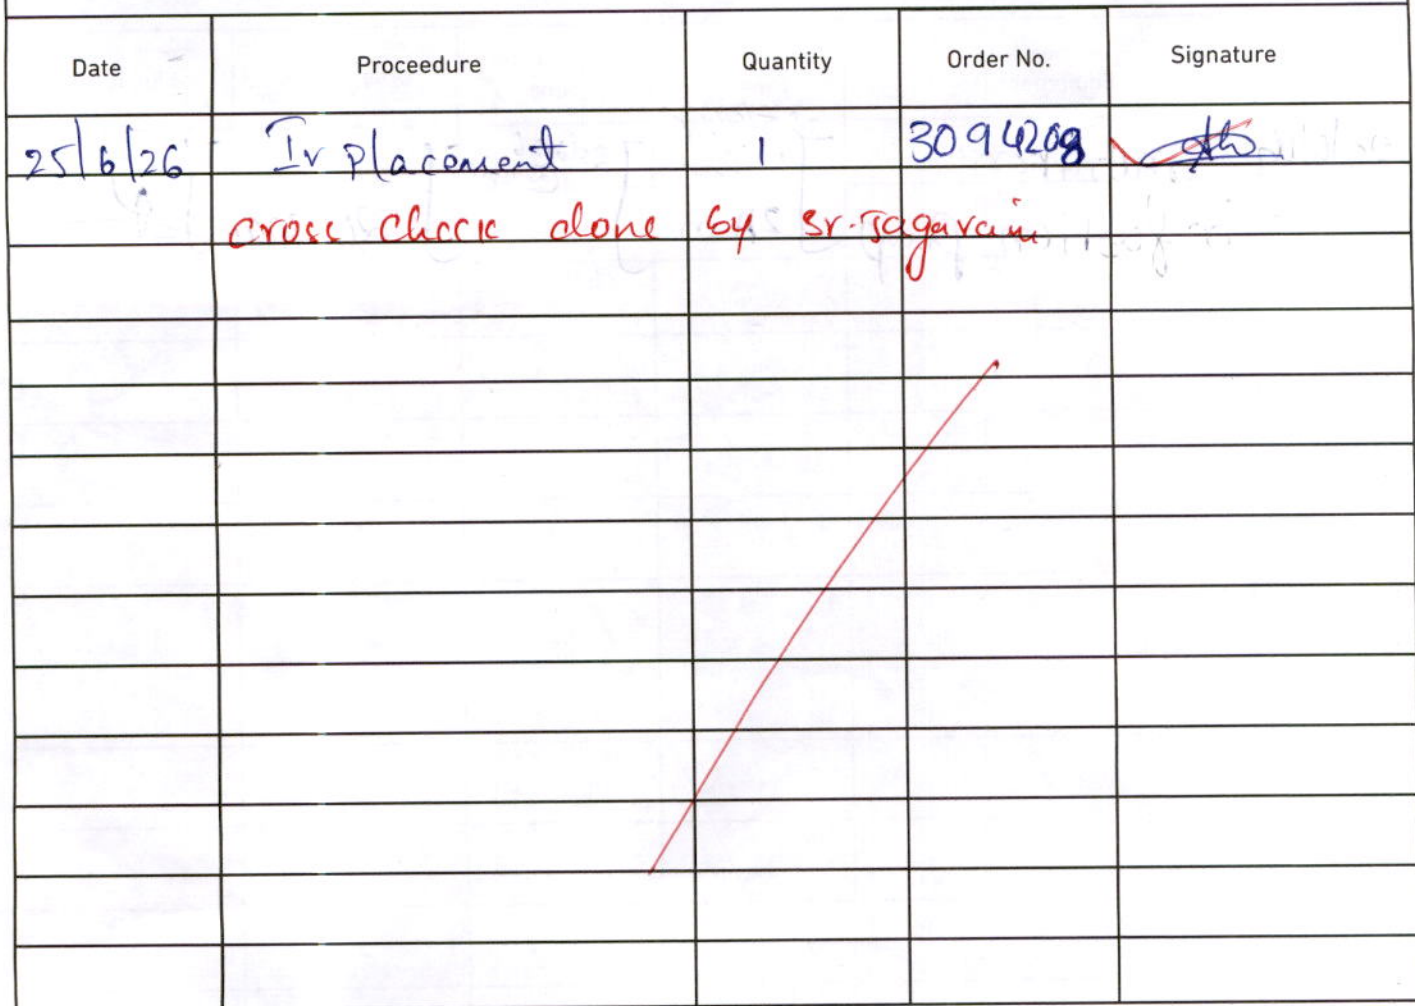 Date Proceedure Quantity Order No. Signature
25/6/26 Iv placement 1 3094208
cross check done by sr.